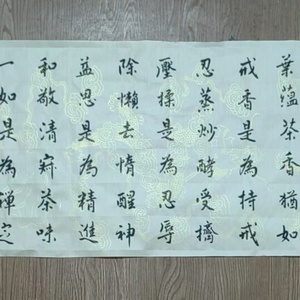 葉蘊茶香猶如
戒香是為持戒
忍蒸炒酵受擠
壓揉是為忍辱
除懶去惰醒神
益思是為精進
和敬清寂茶味
一如是為禪定